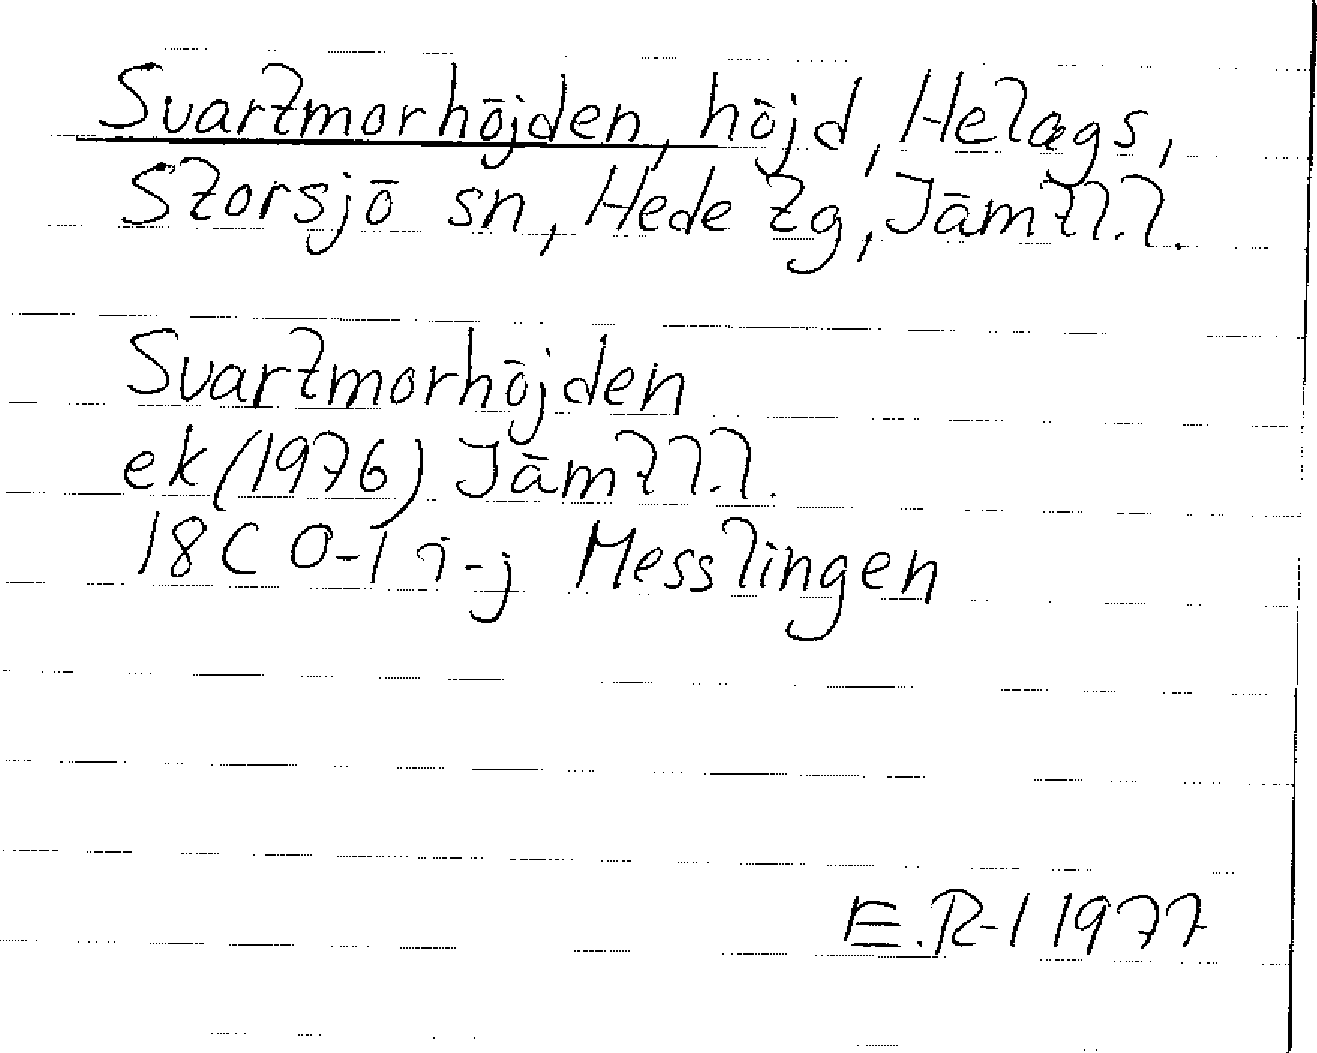 Svartmorhöjden, höjd, Helags,
Storsjö sn, Hede tg, Jämtl.l.
Svartmorhöjden
ek (1976) Jämtl.l.
18C 0-1 i-j Messlingen
E.R-l 1977